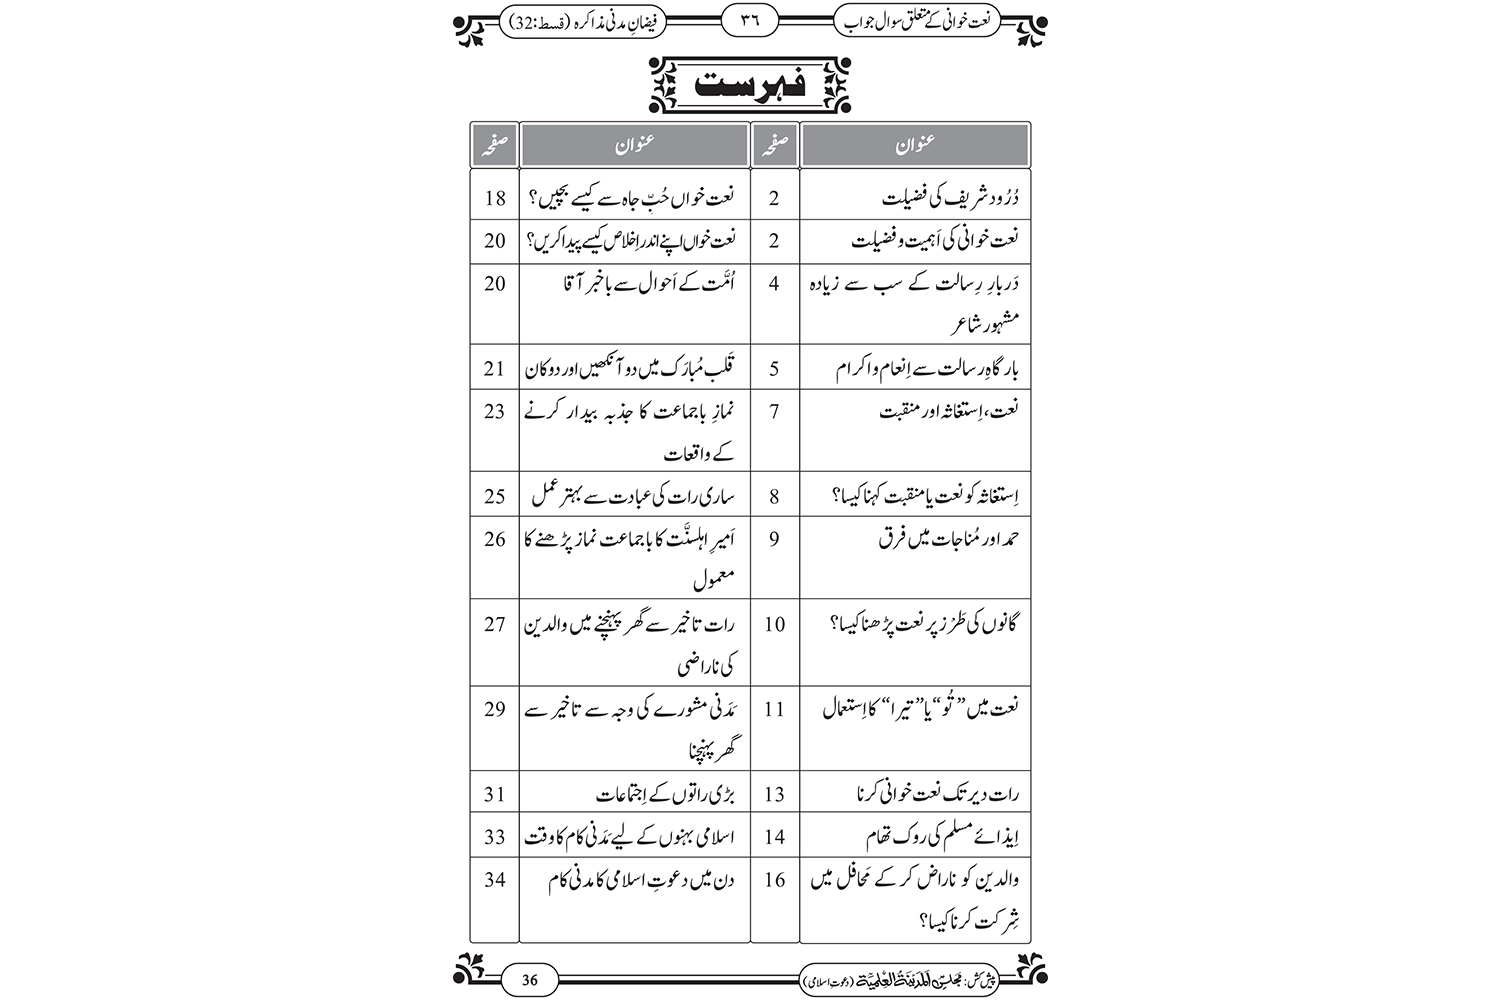 نعت خوانی کے متعلق سوال جواب
۳۶
فیضانِ مدنی مذاکرہ (قسط:32)
فہرست
عنوان صفحہ عنوان صفحہ
دُرُود شریف کی فضیلت 2 نعت خواں حُبِّ جاہ سے کیسے بچیں؟ 18
نعت خوانی کی اَہمیت و فضیلت 2 نعت خواں اپنے اندر اِخلاص کیسے پیدا کریں؟ 20
دَربارِ رِسالت کے سب سے زیادہ 4 اُمَّت کے اَحوال سے باخبر آقا 20
مشہور شاعر
بارگاہِ رسالت سے اِنعام و اکرام 5 قَلب مُبارَک میں دو آنکھیں اور دو کان 21
نعت، اِستغاثہ اور منقبت 7 نمازِ باجماعت کا جذبہ بیدار کرنے 23
کے واقعات
اِستغاثہ کو نعت یا منقبت کہنا کیسا؟ 8 ساری رات کی عبادت سے بہتر عمل 25
حمد اور مُناجات میں فرق 9 اَمیرِ اہلسنَّت کا باجماعت نماز پڑھنے کا 26
معمول
گانوں کی طَرْز پر نعت پڑھنا کیسا؟ 10 رات تاخیر سے گھر پہنچنے میں والدین 27
کی ناراضی
نعت میں ”تُو“ یا ”تیرا“ کا اِستعمال 11 مَدَنی مشورے کی وجہ سے تاخیر سے 29
گھر پہنچنا
رات دیر تک نعت خوانی کرنا 13 بڑی راتوں کے اِجتماعات 31
اِیذائے مسلم کی روک تھام 14 اسلامی بہنوں کے لیے مَدَنی کام کا وقت 33
والدین کو ناراض کر کے مَحافل میں 16 دن میں دعوتِ اسلامی کا مدنی کام 34
شِرکت کرنا کیسا؟
پیش کش: مجلس المدینۃ العلمیۃ (دعوتِ اسلامی)
36